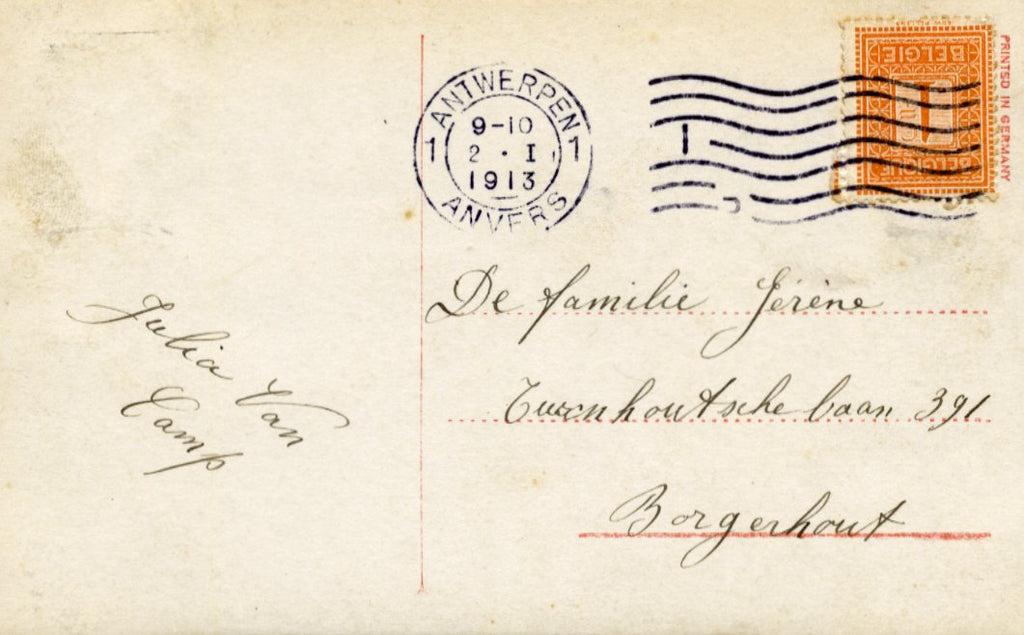 ANTWERPEN
1 9-10 1
2 · I
1913
ANVERS
1
BELGIE
1
BELGIQUE
PRINTED IN GERMANY
De familie Jérène
Turnhoutsche baan 391
Borgerhout
Julia Van
Camp